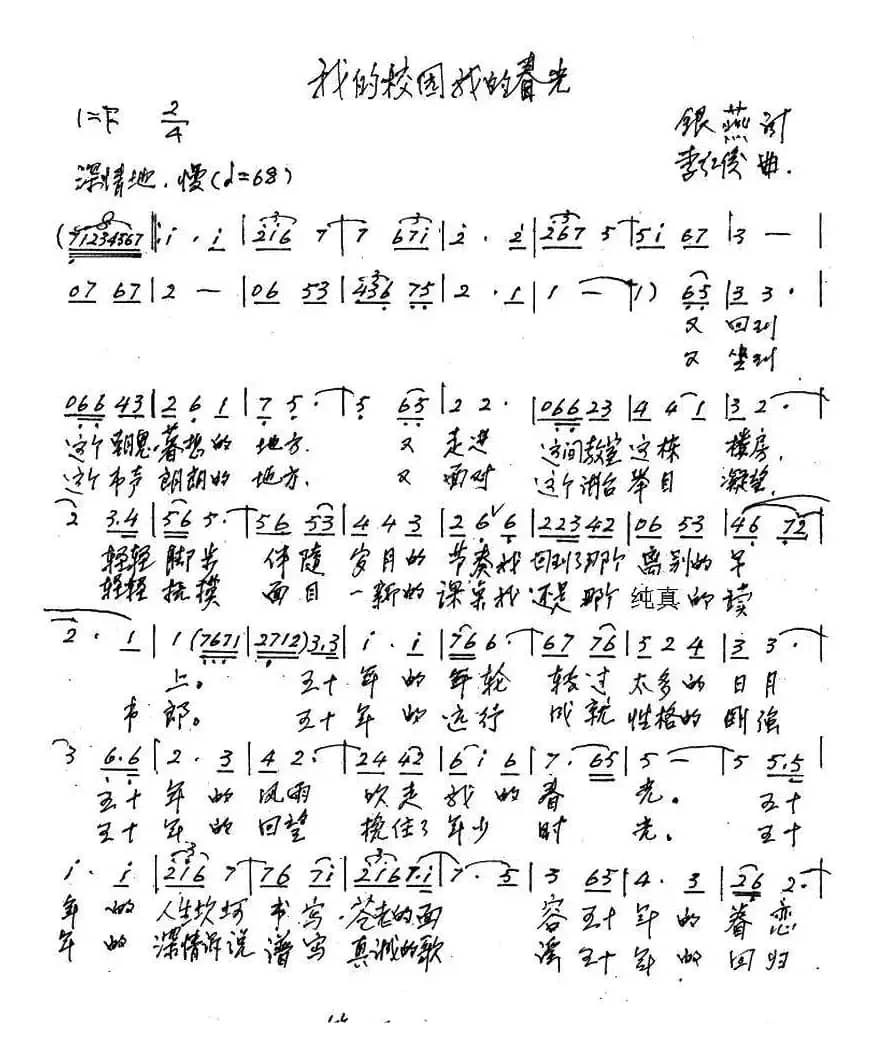 我的校园我的春光
1=F 2/4
银燕词
李红俊曲.
深情地.慢(♩=68)
(71234567‖: i · i | 2i6 7 | 7 67i | 2 · 2 | 267 5 | 5i 67 | 3 — |
07 67 | 2 — | 06 53 | 436 75 | 2 · 1 | 1 — | 1) 65 | 3 3 · |
又 回到
又 坐到
066 43 | 2 6 1 | 7 5 · | 5 65 | 2 2 · | 066 23 | 4 4 1 | 3 2 · |
这个朝思暮想的 地方. 又 走进 这间教室这栋 楼房,
这个书声朗朗的 地方. 又 面对 这个讲台举目 凝望,
2 3·4 | 56 5 · | 56 53 | 4 4 3 | 2 6 6 | 223 42 | 06 53 | 46 72 |
轻轻脚步 伴随 岁月的 节奏我 回到了那个 离别的早
轻轻抚摸 面目 一新的 课桌我 还是那个 纯真的读
2 · 1 | 1 (7671 | 2712) 3·3 | i · i | 76 6 · | 67 76 | 5 2 4 | 3 3 · |
上。 五十 年 的 年轮 转过 太多的 日月
书 郎。 五十 年 的 远行 成就 性格的 刚强
3 6·6 | 2 · 3 | 4 2 · | 24 42 | 6 i 6 | 7 · 65 | 5 — | 5 5·5 |
五十 年 的 风雨 吹走 我 的 春 光。 五十
五十 年 的 回望 挽住了 年少 时 光。 五十
i · i | 2i6 7 | 76 7i | 2i67·i | 7 · 5 | 3 65 | 4 · 3 | 26 2 · |
年 的 人生坎坷 书写 苍老的面 容 五十 年 的 眷恋
年 的 深情诉说 谱写 真诚的歌 五十 年 的 回归